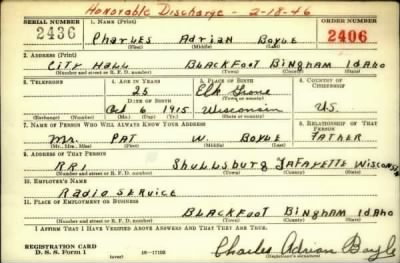 Honorable Discharge - 2-18-46
SERIAL NUMBER 1. NAME (Print) ORDER NUMBER
2436 Charles Adrian Boyle 2406
(First) (Middle) (Last)
2. ADDRESS (Print)
City Hall Blackfoot Bingham Idaho
(Number and street or R. F. D. number) (Town) (County) (State)
3. TELEPHONE 4. AGE IN YEARS 5. PLACE OF BIRTH 6. COUNTRY OF CITIZENSHIP
25 Elk Grove
DATE OF BIRTH (Town or county)
Oct 6 1915 Wisconsin U.S.
(Exchange) (Number) (Mo.) (Day) (Yr.) (State or country)
7. NAME OF PERSON WHO WILL ALWAYS KNOW YOUR ADDRESS 8. RELATIONSHIP OF THAT PERSON
Mr. Pat W. Boyle Father
(Mr., Mrs., Miss) (First) (Middle) (Last)
9. ADDRESS OF THAT PERSON
RR1 Shullsburg Lafayette Wisconsin
(Number and street or R. F. D. number) (Town) (County) (State)
10. EMPLOYER'S NAME
Radio Service
11. PLACE OF EMPLOYMENT OR BUSINESS
Blackfoot Bingham Idaho
(Number and street or R. F. D. number) (Town) (County) (State)
I AFFIRM THAT I HAVE VERIFIED ABOVE ANSWERS AND THAT THEY ARE TRUE.
REGISTRATION CARD
D. S. S. Form 1 16-17105 Charles Adrian Boyle
(Registrant's signature)